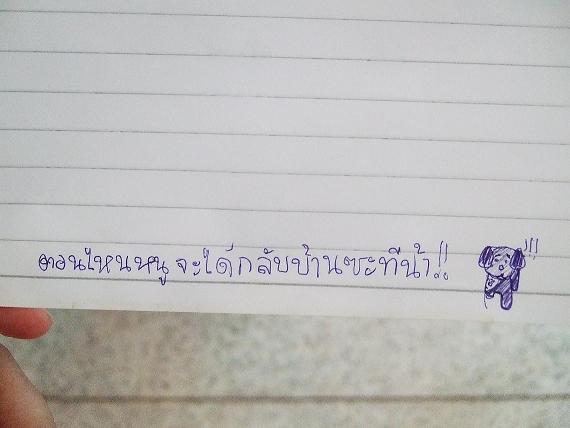 ตอนไหนหนูจะได้กลับบ้านซะทีน้า!! !!!